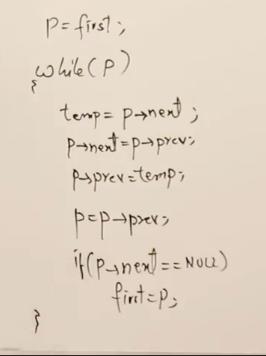 P=first;
while(P)
{
temp=P→next;
P→next=P→prev;
P→prev=temp;
P=P→prev;
if(P→next==NULL)
first=P;
}